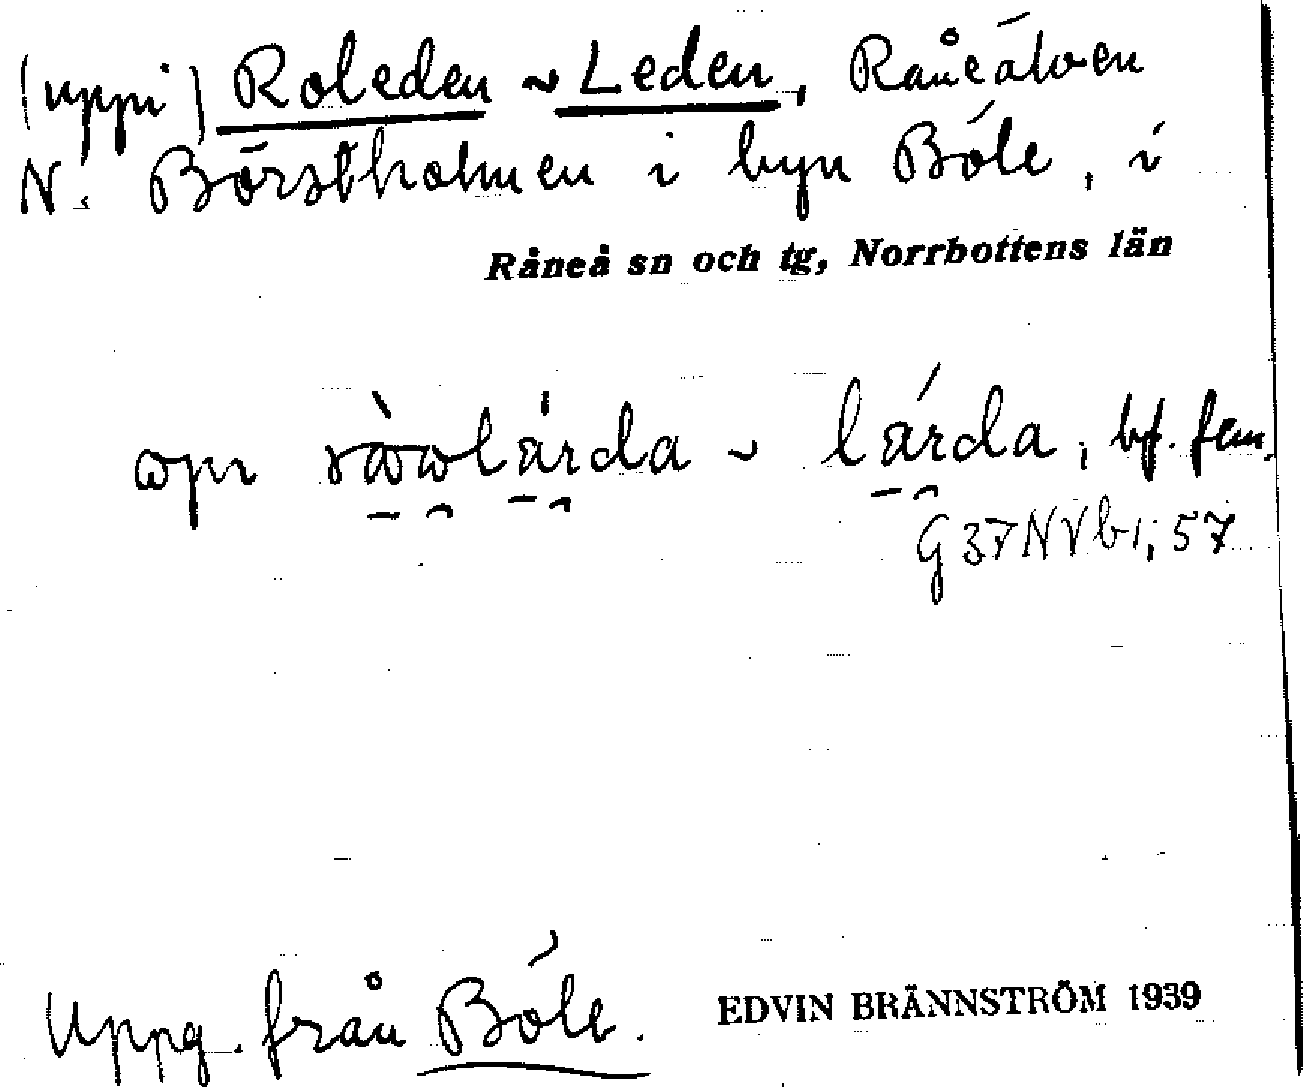 (uppi) Roleden ~ Leden, Råneälven
N. Börstholmen i byn Böle, i
Råneå sn och tg, Norrbottens län
bf. fem.
G 37 NV b 1; 57
Uppg. från Böle.
EDVIN BRÄNNSTRÖM 1939